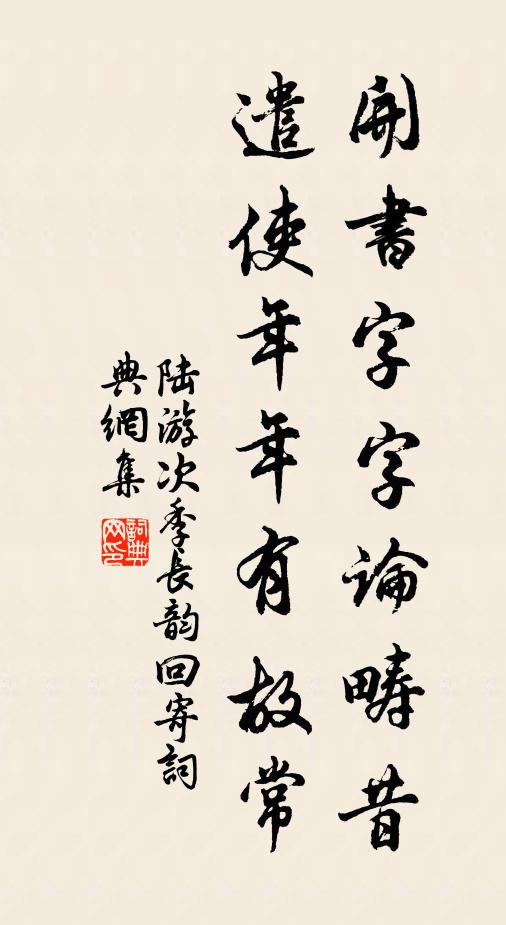 開書字字論疇昔
遣使年年有故常
陆游次季長韵回寄詞
典網集
詞典
网印